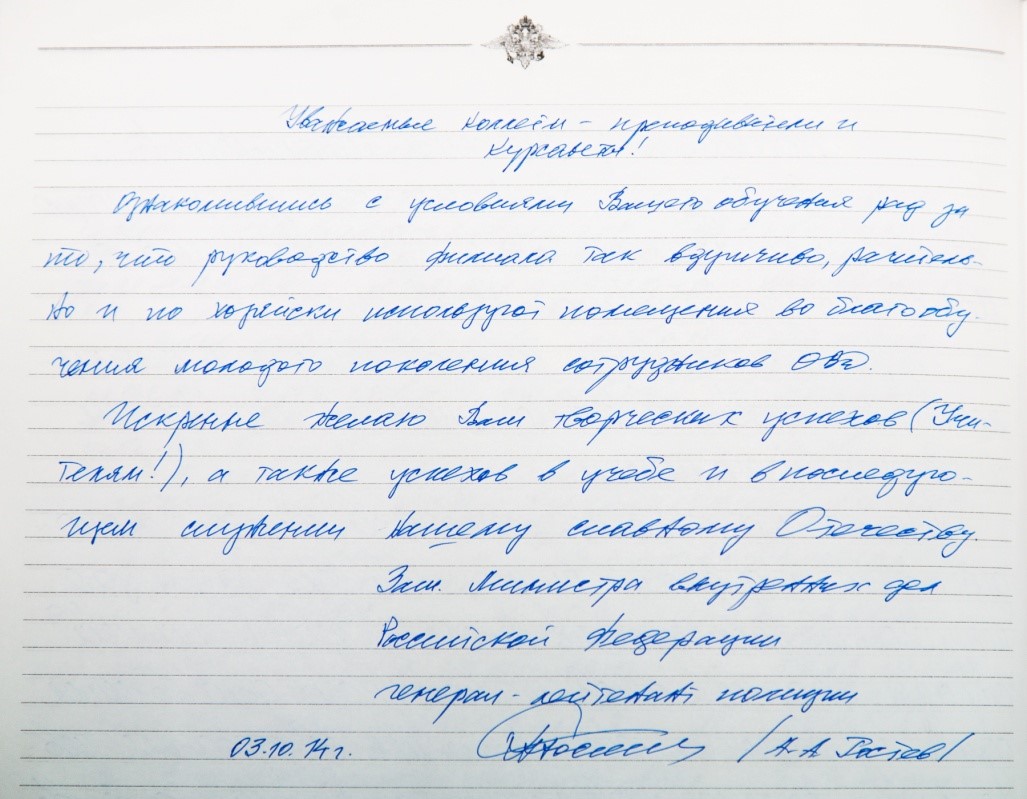 Уважаемые коллеги - преподаватели и
курсанты!
Ознакомившись с условиями Вашего обучения рад за
то, что руководство филиала так вдумчиво, рачитель-
но и по хозяйски использует помещения во благо обу-
чения молодого поколения сотрудников ОВД.
Искренне желаю Вам творческих успехов (Учи-
телям!), а также успехов в учебе и в последую-
щем служении нашему славному Отечеству.
Зам. Министра внутренних дел
Российской Федерации
генерал-лейтенант полиции
03.10.14г. /А.А Гостев/